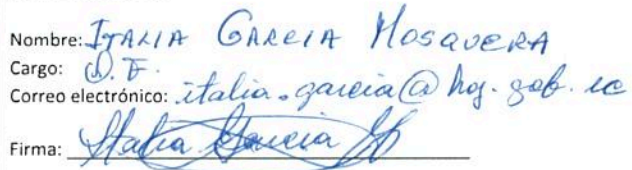 Nombre: ITALIA GARCIA MOSQUERA
Cargo: D.F.
Correo electrónico: italia.garcia@hoj.gob.ec
Firma: Italia Garcia M